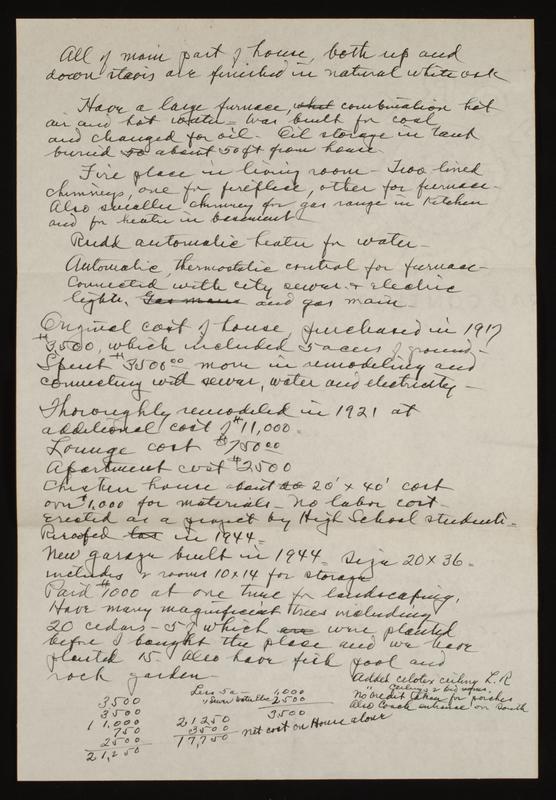 All of main part of house, both up and
down stairs are finished in natural white oak
Have a large furnace, what combination hot
air and hot water - was built for coal
and changed for oil - Oil storage in tank
buried so about 50 ft from house -
Fire place in living room - Two lined
chimneys, one for fireplace, other for furnace -
Also smaller chimney for gas range in kitchen
and for heater in basement
Rudd automatic heater for water -
Automatic, thermostatic control for furnace -
Connected with city sewer & electric
lights. Gas mains and gas main
Original cost of house, purchased in 1917
$3500, which included 5 acres of ground -
Spent $3500.00 more in remodeling and
connecting with sewer, water and electricity -
Thoroughly remodeled in 1921 at
additional cost of $11,000 -
Lounge cost $750.00
Apartment cost $2500
Chicken house about 20' x 40' cost
over $1,000 for materials - No labor cost -
Erected as a project by High School students -
Reroofed in 1944 -
New garage built in 1944 - Size 20 x 36 -
includes 2 rooms 10 x 14 for storage
Paid $1000 at one time for landscaping,
Have many magnificent trees including
20 cedars - 5 of which are were planted
before I bought the place and we have
planted 15. Also have fish pool and
rock garden -
Added celotex ceiling L.R
Ceilings 2 bed rooms.
No credit taken for porches
Also Coach entrance on South
3500
3500
11,000
750
2500
21,250
Less 5 a - 1,000
2500
3500
21250
3500
17,750 net cost on House alone